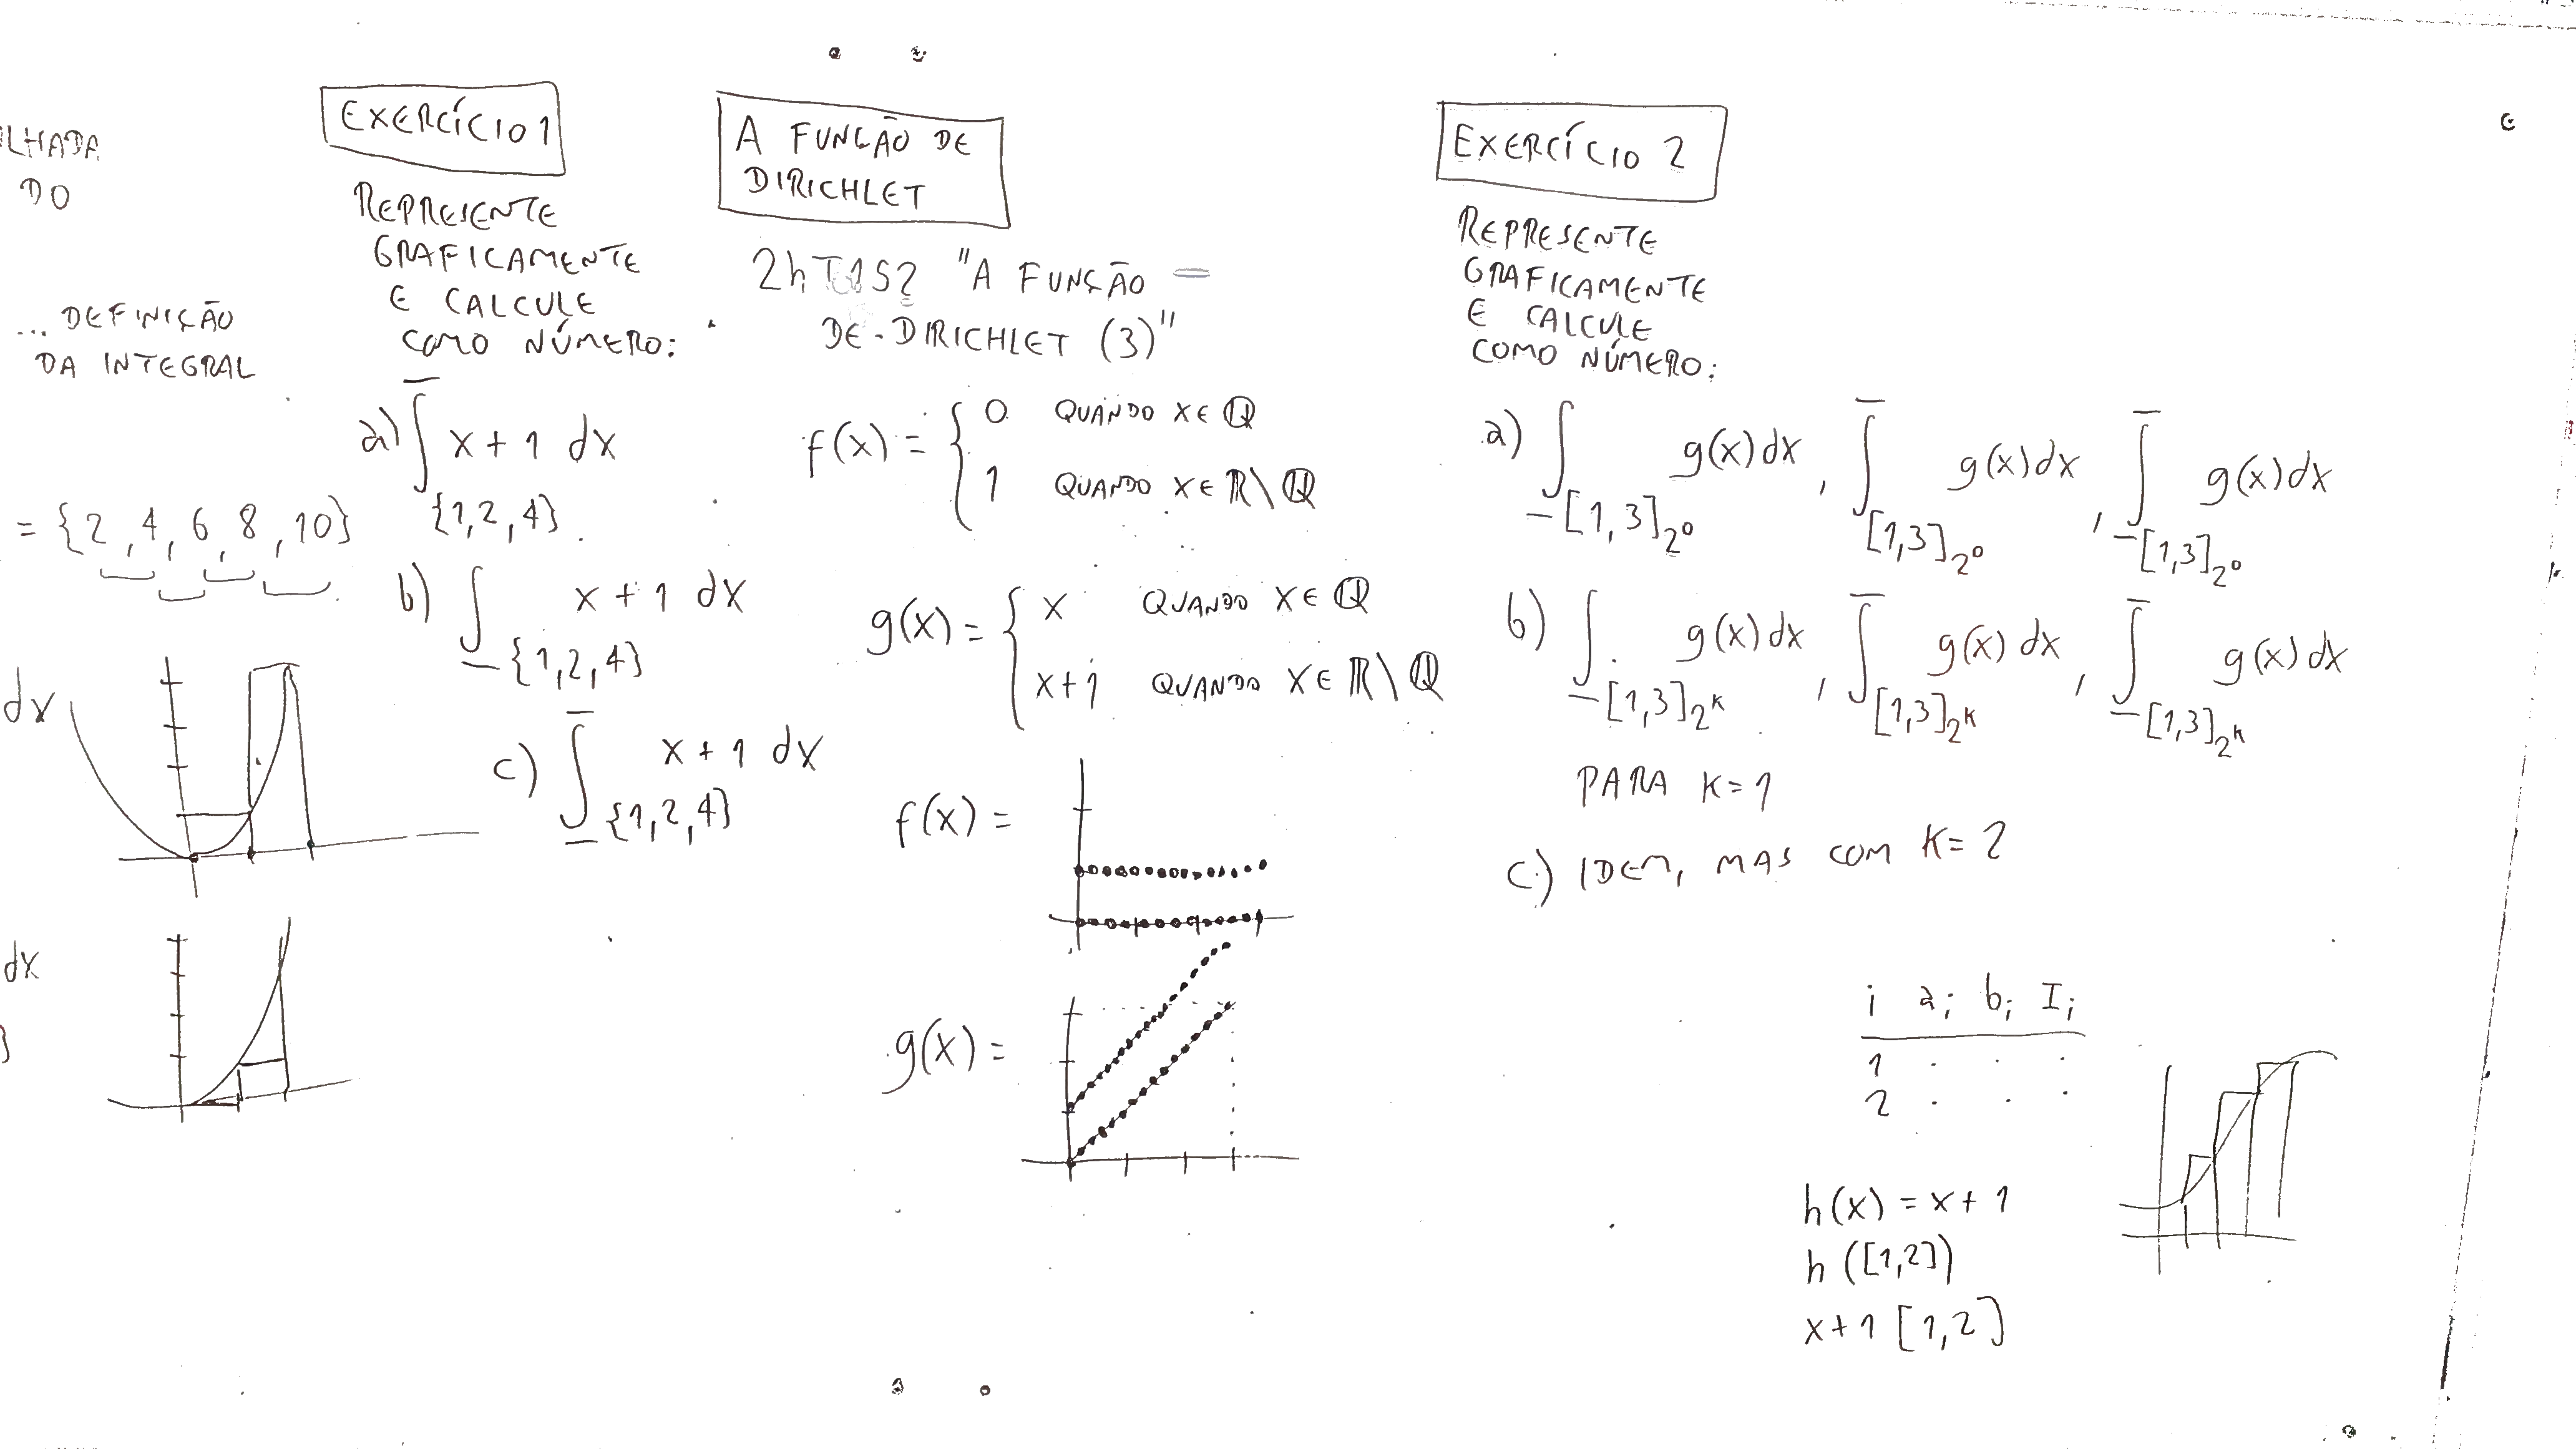 LHADA
DO
... DEFINIÇÃO
DA INTEGRAL
= {2, 4, 6, 8, 10}
dx
dx
}
EXERCÍCIO 1
REPRESENTE
GRAFICAMENTE
E CALCULE
COMO NÚMERO:
a) ∫‾_{1,2,4} x+1 dx
b) ∫_ {1,2,4} x+1 dx
c) ∫‾_ {1,2,4} x+1 dx
A FUNÇÃO DE
DIRICHLET
"A FUNÇÃO –
DE-DIRICHLET (3)"
f(x) = { 0 QUANDO X ∈ ℚ
1 QUANDO X ∈ ℝ\ℚ
g(x) = { x QUANDO X ∈ ℚ
x+1 QUANDO X ∈ ℝ\ℚ
f(x) =
g(x) =
EXERCÍCIO 2
REPRESENTE
GRAFICAMENTE
E CALCULE
COMO NÚMERO:
a) ∫_ [1,3]_2⁰ g(x)dx, ∫‾ [1,3]_2⁰ g(x)dx, ∫‾_ [1,3]_2⁰ g(x)dx
b) ∫_ [1,3]_2ᴷ g(x)dx, ∫‾ [1,3]_2ᴷ g(x)dx, ∫‾_ [1,3]_2ᴷ g(x)dx
PARA K=1
c) IDEM, MAS COM K=2
i aᵢ bᵢ Iᵢ
1 . . .
2 . . .
h(x) = x+1
h([1,2])
x+1 [1,2]